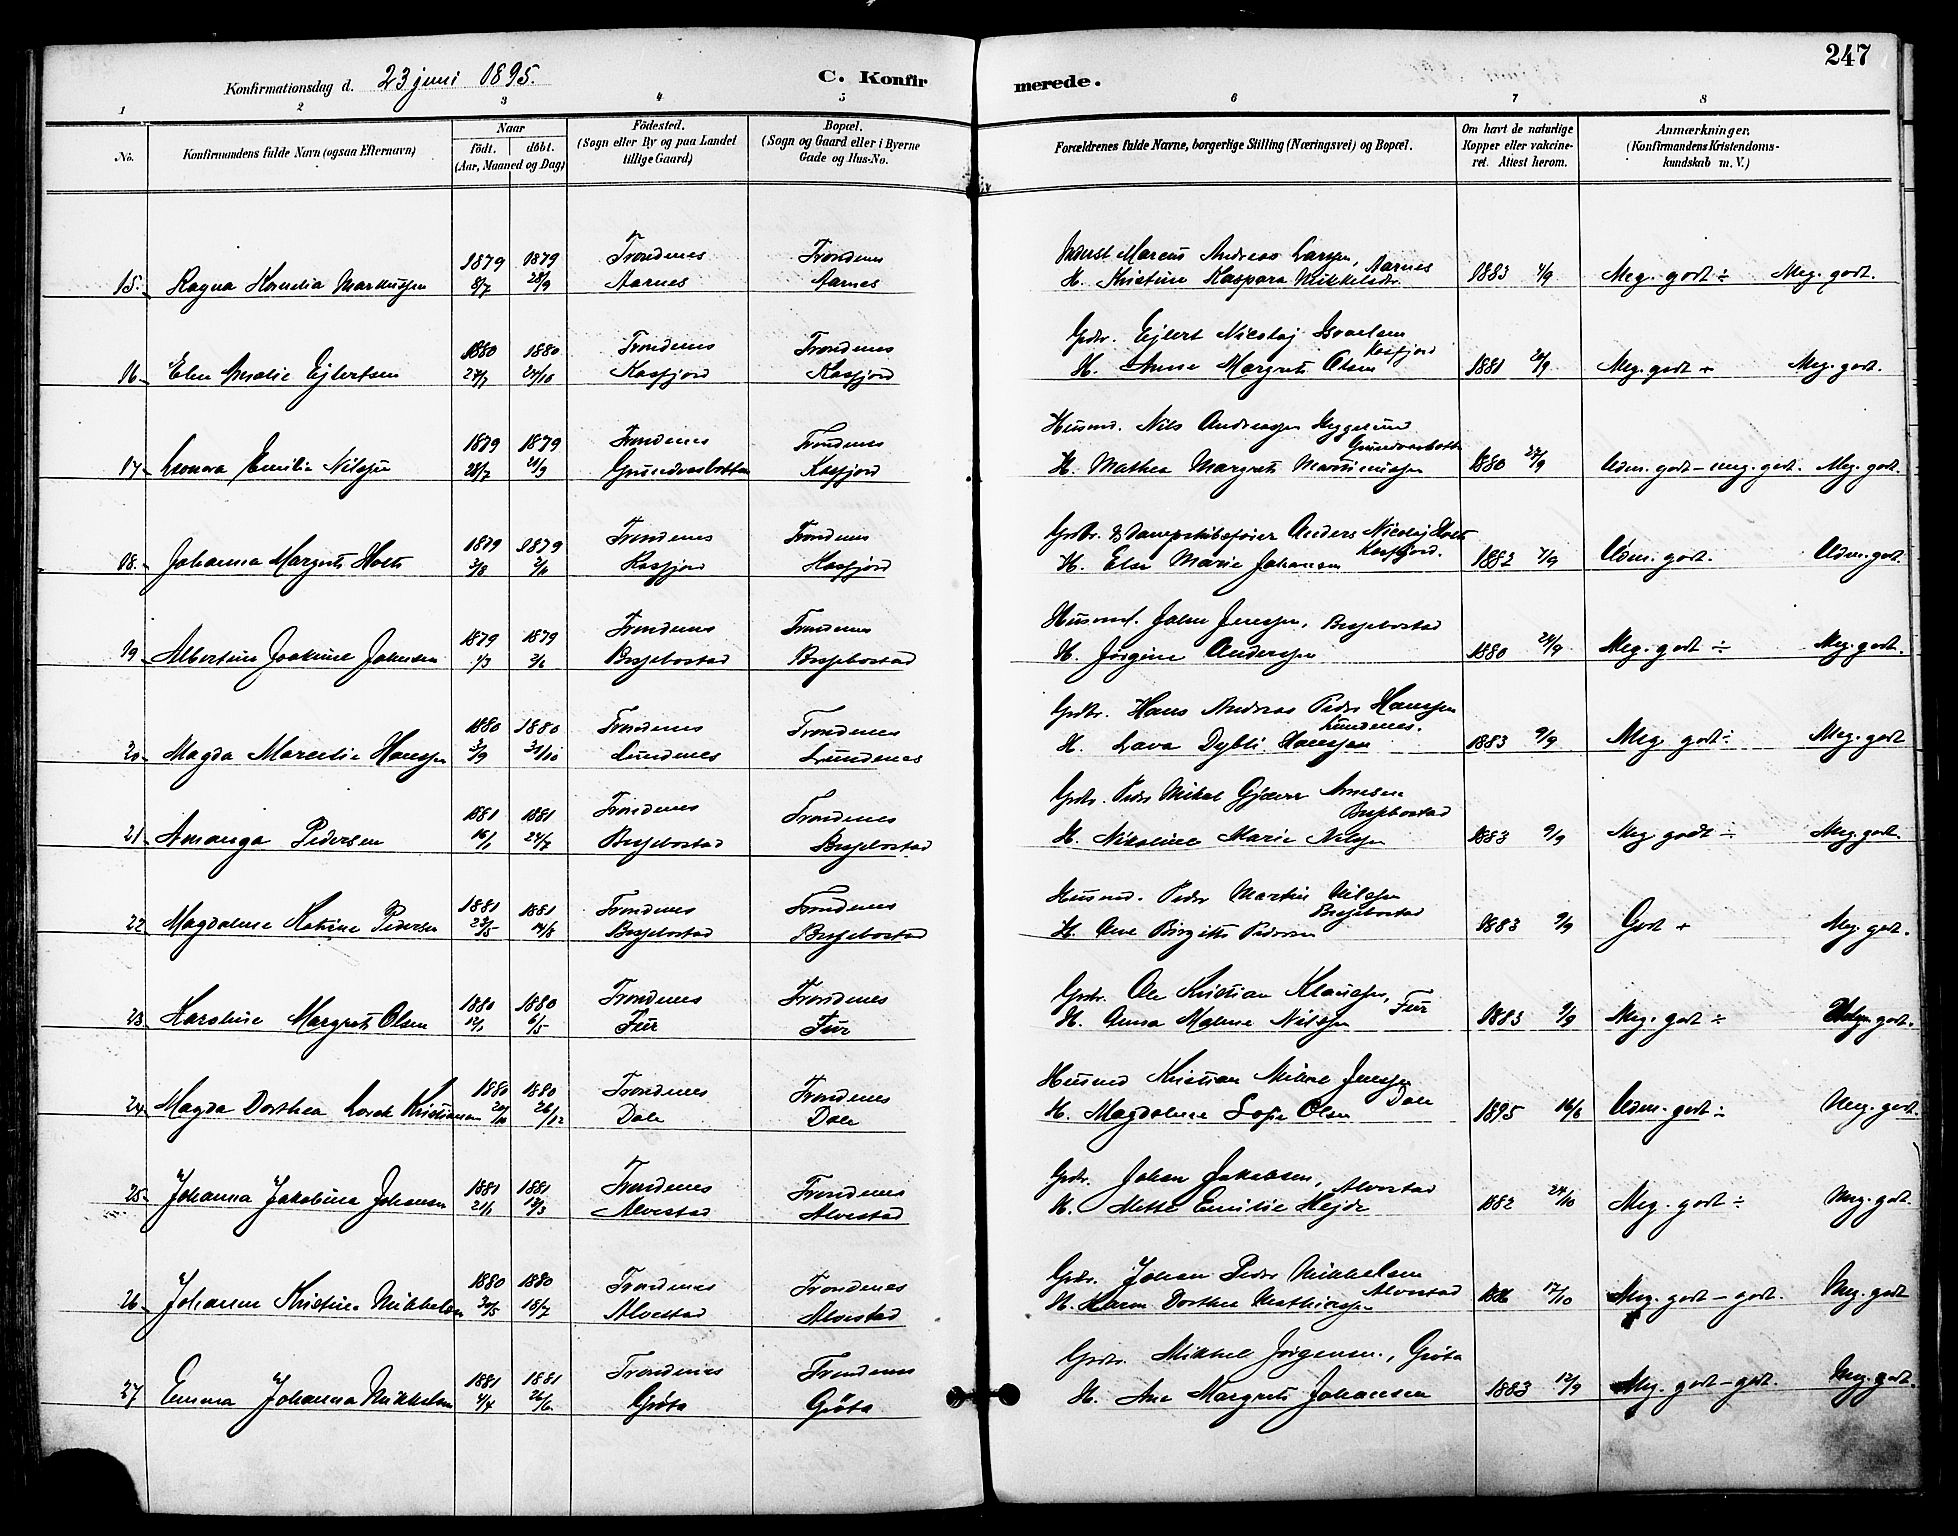 247
Konfirmationsdag d. 23 juni 1895.
C. Konfirmerede.
1 2 3 4 5 6 7 8
No. Konfirmandens fulde Navn (ogsaa Efternavn) Naar födt. döbt. (Aar, Maaned og Dag) Födested. (Sogn eller By og paa Landet tillige Gaard) Bopæl. (Sogn og Gaard eller i Byerne Gade og Hus-No. Forældrenes fulde Navne, borgerlige Stilling (Næringsvei) og Bopæl. Om havt de naturlige Kopper eller vakcineret. Attest herom. Anmærkninger. (Konfirmandens Kristendomskundskab m. V.)
1879 1879 Trondenes Trondenes Marcus Andreas Larsen, Aarnes
15. Ragna Kornelia Markussen 8/7 28/9 Aarnes Aarnes H. Kristine Kaspara Mikkelsdr. 1883 4/9 Meg. godt ÷ Meg. godt.
1880 1880 Trondenes Trondenes Grdbr. Ejlert Nicolaj Israelsen Kasfjord
16. Elen Ejlertsen 27/7 24/10 Kasfjord Kasfjord H. Anne Margrete Olsen 1881 Meg. godt + Meg. godt.
1879 1879 Trondenes Trondenes Husmd. Nils Andreassen
17. Leonora Emilie Nilssen 28/7 21/9 Kasfjord H. Mathea Margrete 1880 27/9 Udm. godt – meg. godt. Meg. godt.
1879 1879 Trondenes Trondenes Grdbr. & Dampskibsfører Anders Nicolaj Holte Kasfjord.
18. Johanna Margrete Holte 3/8 Kasfjord Kasfjord H. Else Marie Johansen 1882 7/9 Udm. godt. Udm. godt.
1879 1879 Trondenes Trondenes Husmd. John Jenssen, Bessebostad
19 Albertine Joakime Johnsen Bessebostad Bessebostad H. Jörgine Anderssen 1880 24/9 Meg. godt ÷ Meg. godt.
1880 1880 Trondenes Trondenes Grdbr. Hans Andreas Peder Hanssen Lundenes.
20. Magda Marcelie Hanssen 3/9 31/10 Lundenes Lundenes H. Lava Dybli Hanssen 1883 9/9 Meg. godt ÷ Meg. godt
1881 1881 Trondenes Trondenes Grdbr. Peder Mikal Gjæver Arnesen Bessebostad
21. Amanga Pedersen 16/1 24/7 Bessebostad Bessebostad H. Nikoline Marie Nilssen 1883 9/9 Meg. godt ÷ Meg. godt.
1881 1881 Trondenes Trondenes Husmd. Peder Martin Nilssen Bessebostad
22. Magdalene Katrine Pedersen 23/5 14/8 Bessebostad Bessebostad H. Ane Birgitte Pedersen 1883 9/9 Godt + Meg. godt.
1880 1880 Trondenes Trondenes Grdbr. Ole Kristian Klaussen, Fur
23. Karoline Margrete Olsen 12/1 6/5 Fur Fur H. Anna Malene Nilssen 1883 9/9 Meg. godt ÷ godt.
1880 1880 Trondenes Trondenes Husmd Kristian Mikal Jenssen Dale
24. Magda Dorthea Kristiansen 20/10 26/12 Dale Dale H. Magdalene Sofie Olsen 1895 16/6 Udm. godt ÷ Meg. godt.
1881 1881 Trondenes Trondenes Grdbr. Johan Jakobsen, Alvestad
25. Johanna Jakobine Johansen 21/1 13/3 Alvestad Alvestad H. Mette Emilie Hejde 1882 24/10 Meg. godt ÷ Meg. godt.
1880 1880 Trondenes Trondenes Grdbr. Johan Peder Mikkelsen Alvestad
26. Johanna Kristine Mikkelsen 30/5 18/7 Alvestad Alvestad H. Karen Dorthea Mathiassen 17/10 Meg. godt – godt. Meg. godt
1881 1881 Trondenes Trondenes Grdbr. Mikkel Jørgensen, Gröta
27 Emma Johanna Mikkelsen 4/4 26/6 Gröta Gröta H. Ane Margrete Johansen 1883 12/9 Meg. godt – godt. Meg. godt.